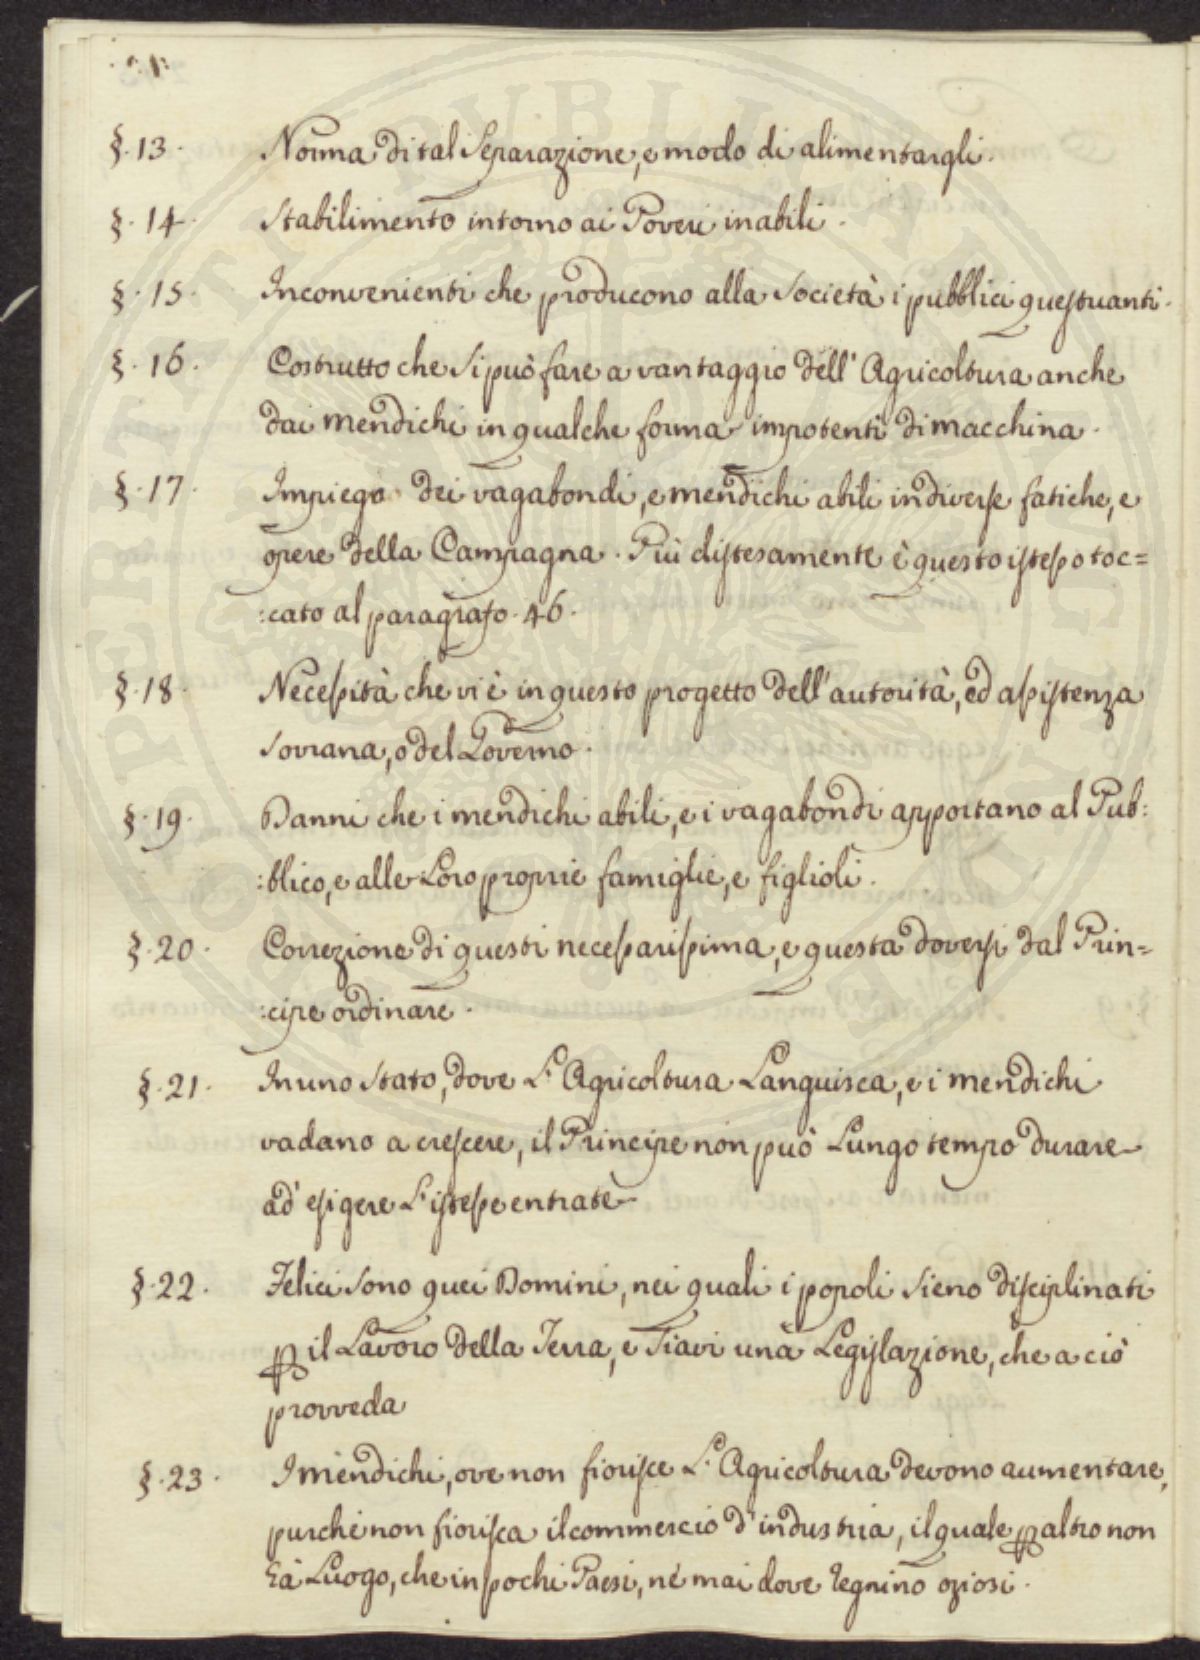 §. 13. Norma di tal Separazione, e modo di alimentargli.
§. 14. Stabilimento intorno ai Poveri inabili.
§. 15. Inconvenienti che producono alla Società i pubblici questuanti.
§. 16. Costrutto che si può fare a vantaggio dell' Agricoltura anche
dai mendichi in qualche forma impotenti di macchina.
§. 17. Impiego dei vagabondi, e mendichi abili in diverse fatiche, e
opere della Campagna. Più distesamente è questo istesso toc=
:cato al paragrafo. 46.
§. 18. Necessità che vi è in questo progetto dell' autorità, ed assistenza
Sovrana, o del Governo.
§. 19. Danni che i mendichi abili, e i vagabondi apportano al Pub:
:blico, e alle Loro proprie famiglie, e figlioli.
§. 20. Correzione di questi necessarissima, e questa doversi dal Prin=
:cipe ordinare.
§. 21. In uno Stato, dove L' Agricoltura Languisca, e i mendichi
vadano a crescere, il Principe non può Lungo tempo durare
ad' esigere L' istesse entrate
§. 22. Felici sono quei Domini, nei quali i popoli sieno disciplinati
p il Lavoro della Terra, e siavi una Legislazione, che a ciò
provveda
§. 23. I mendichi, ove non fiorisce L' Agricoltura devono aumentare,
purchè non fiorisca il commercio d' industria, il quale p altro non
hà Luogo, che in pochi Paesi, nè mai dove regnino oziosi.
PUBLICI
SPERITATI